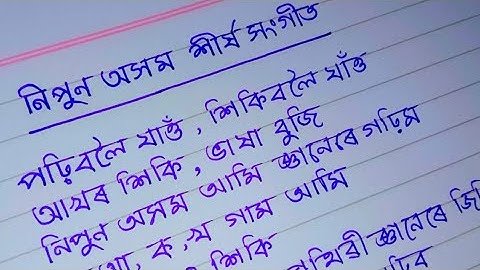 নিপুন অসম শীৰ্ষ সংগীত
পঢ়িবলৈ যাওঁ, শিকিবলৈ যাওঁ
আখৰ শিকি, ভাষা বুজি
নিপুন অসম আমি জ্ঞানেৰে গঢ়িম
ক, খ গাম আমি
শিকি পৃথিৱী জ্ঞানেৰে